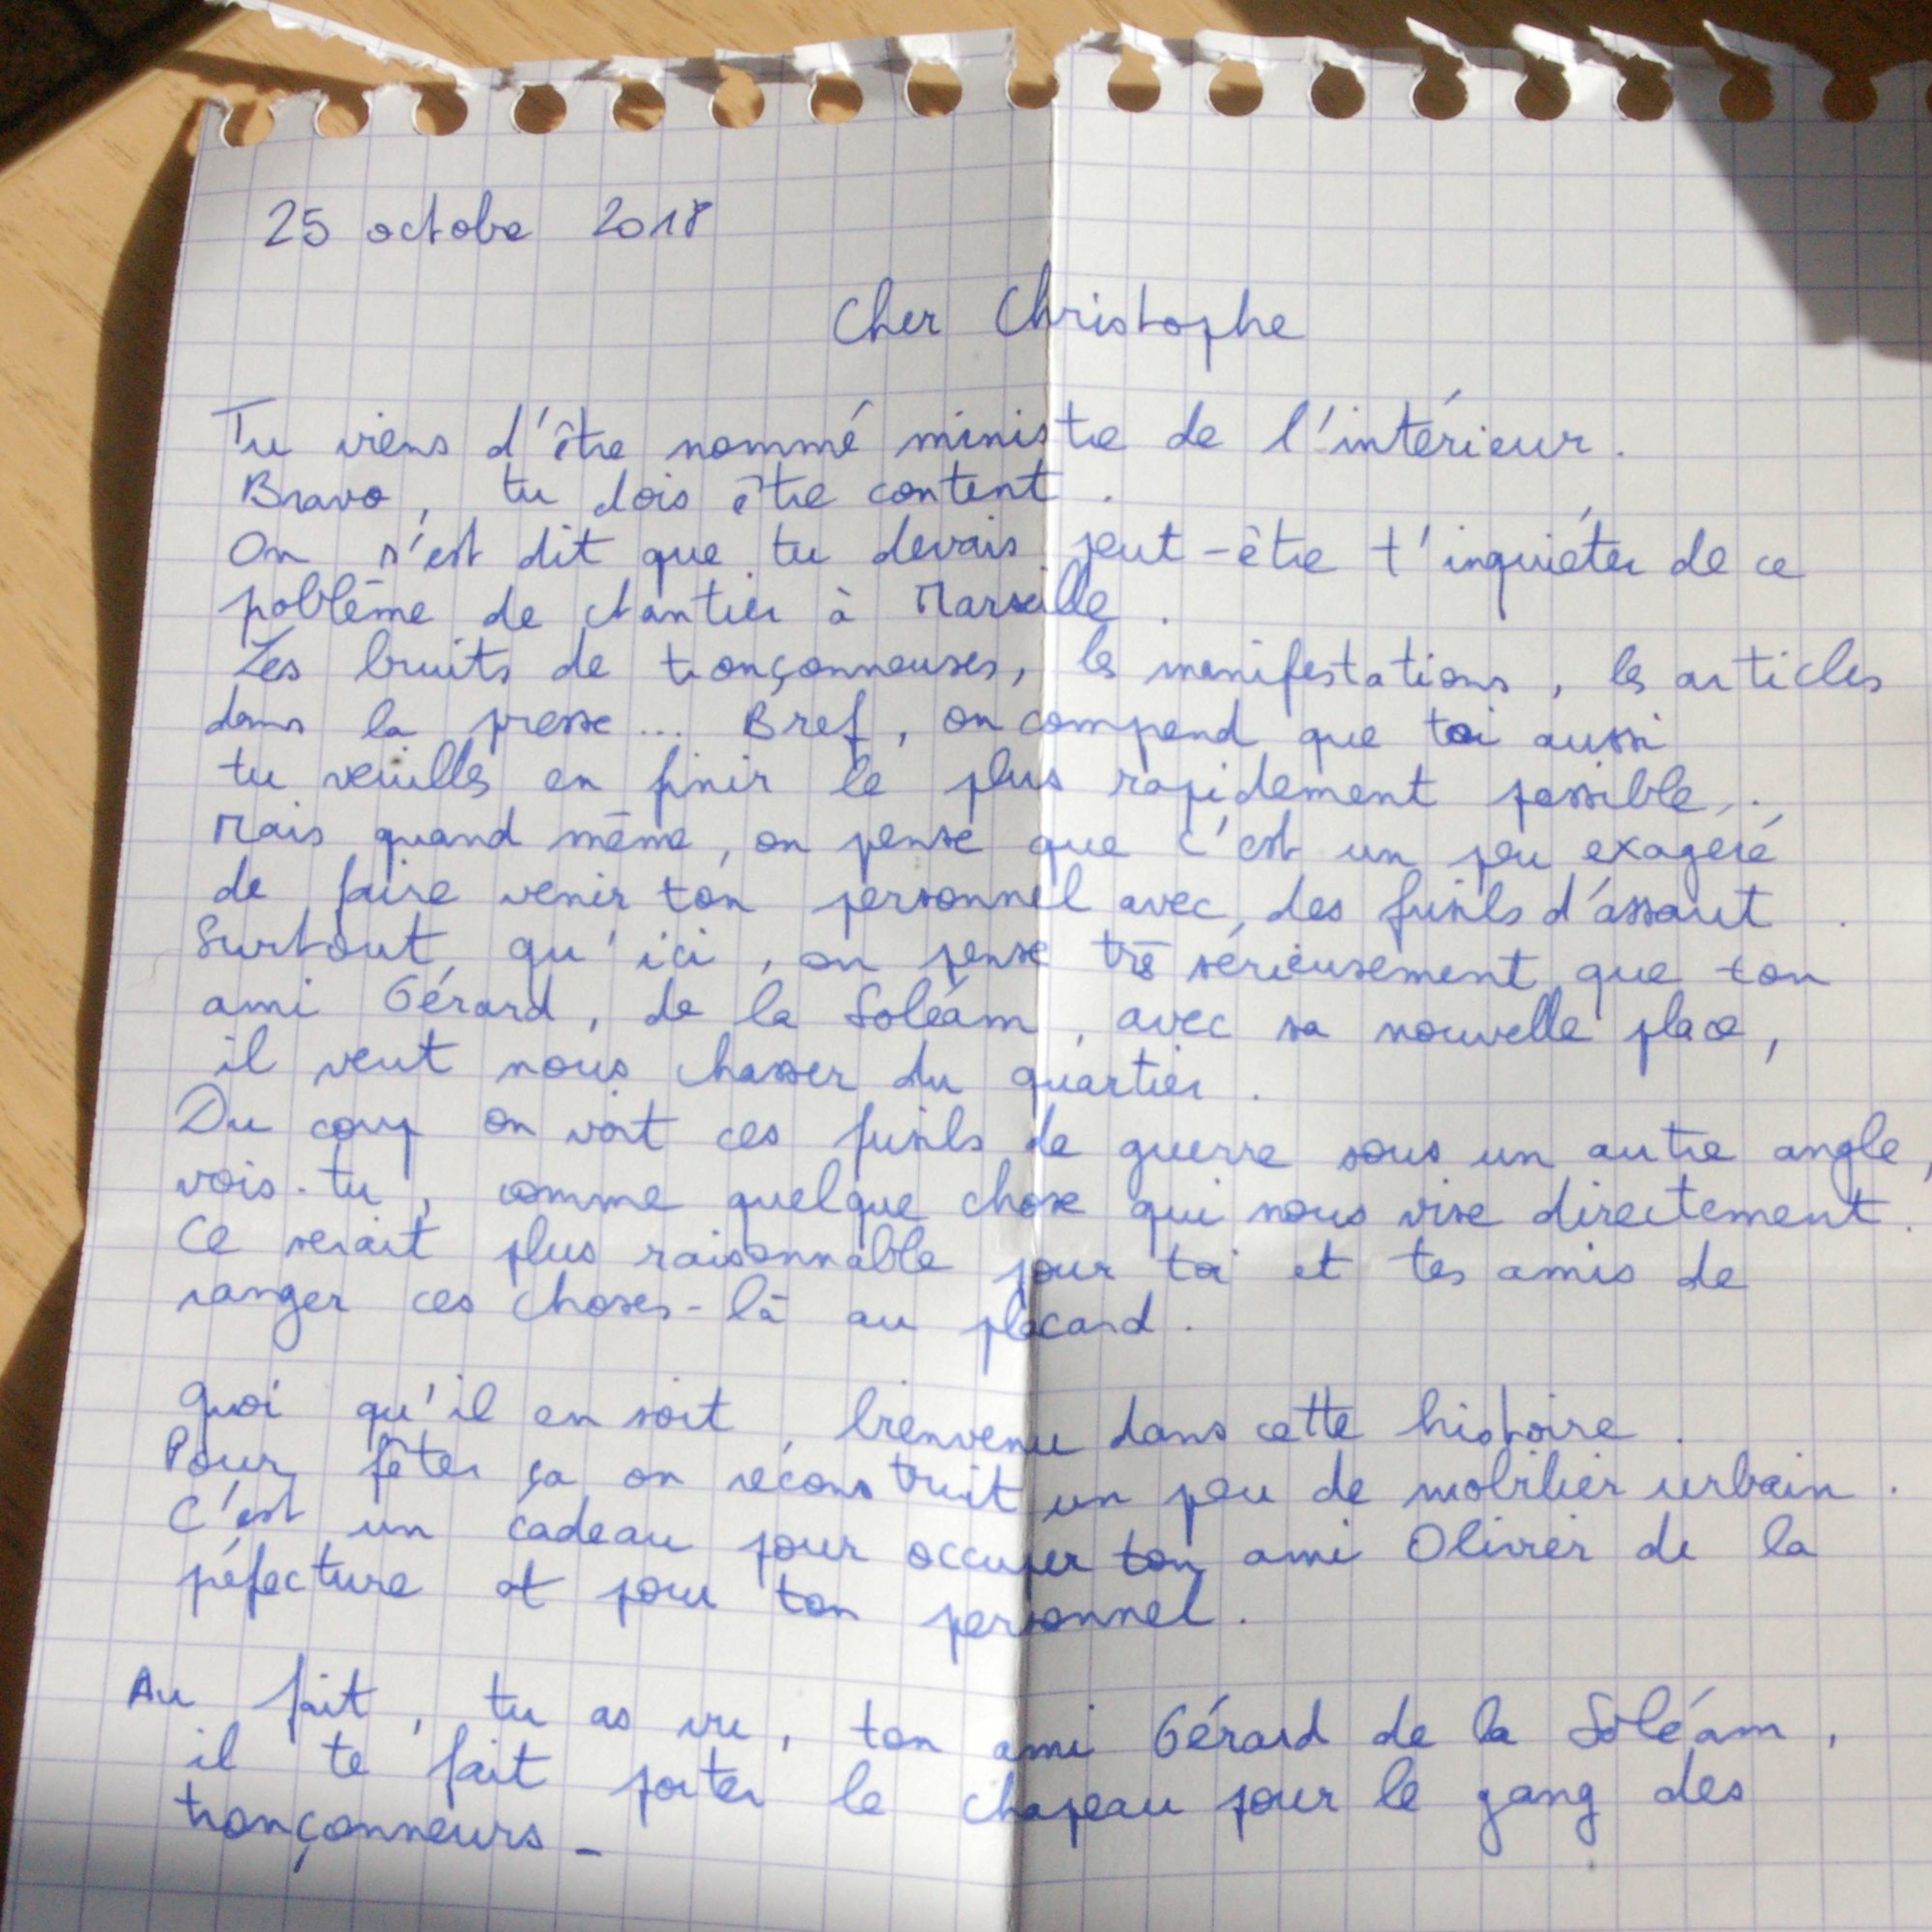 25 octobre 2018
Cher Christophe
Tu viens d'être nommé ministre de l'intérieur.
Bravo, tu dois être content.
On s'est dit que tu devais peut-être t'inquiéter de ce
poblème de chantier à Marseille.
Les bruits de tronçonneuses, les manifestations, les articles
dans la presse... Bref, on comprend que toi aussi
tu veuilles en finir le plus rapidement possible...
Mais quand même, on pense que c'est un peu exagéré
de faire venir ton personnel avec des fusils d'assaut.
Surtout qu'ici, on pense très sérieusement que ton
ami Gérard, de la Soléam, avec sa nouvelle place,
il veut nous chasser du quartier.
Du coup on voit ces fusils de guerre sous un autre angle,
vois-tu, comme quelque chose qui nous vise directement.
Ce serait plus raisonnable pour toi et tes amis de
ranger ces choses-là au placard.
Quoi qu'il en soit, bienvenu dans cette histoire.
Pour fêter ça on reconstruit un peu de mobilier urbain.
C'est un cadeau pour occuper ton ami Olivier de la
péfecture et pour ton personnel.
Au fait, tu as vu, ton ami Gérard de la Soléam,
il te fait porter le chapeau pour le gang des
tronçonneurs-